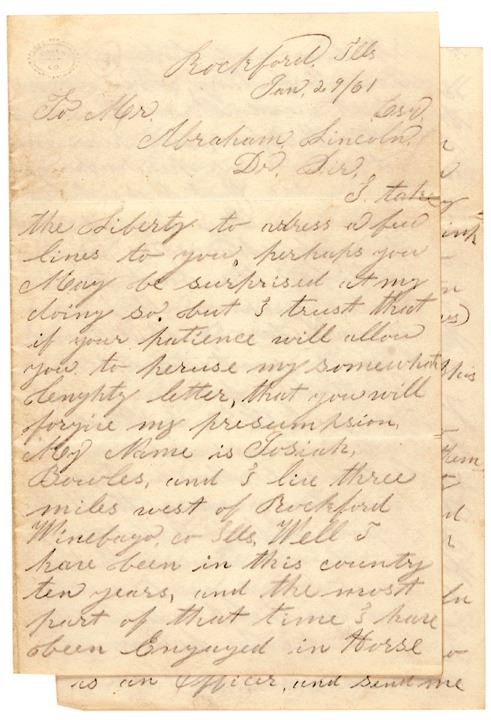 Rockford, Ills
Jan, 29/61
To Mr. Esq.
Abraham, Lincoln.
Dr. Sir,
I take
the Liberty to adress a few
lines to you, perhaps you
May be surprised at my
doing so. but I trust that
if your patience will allow
you to peruse my somewhat
lenghty letter, that you will
forgive my presumpsion,
My Name is Josiah,
Bowles, and I live three
miles west of Rockford
Winebago, co Ills, Well I
have been in this country
ten years, and the most
part of that time I have
been Engaged in Horse
is an Officer, and send me